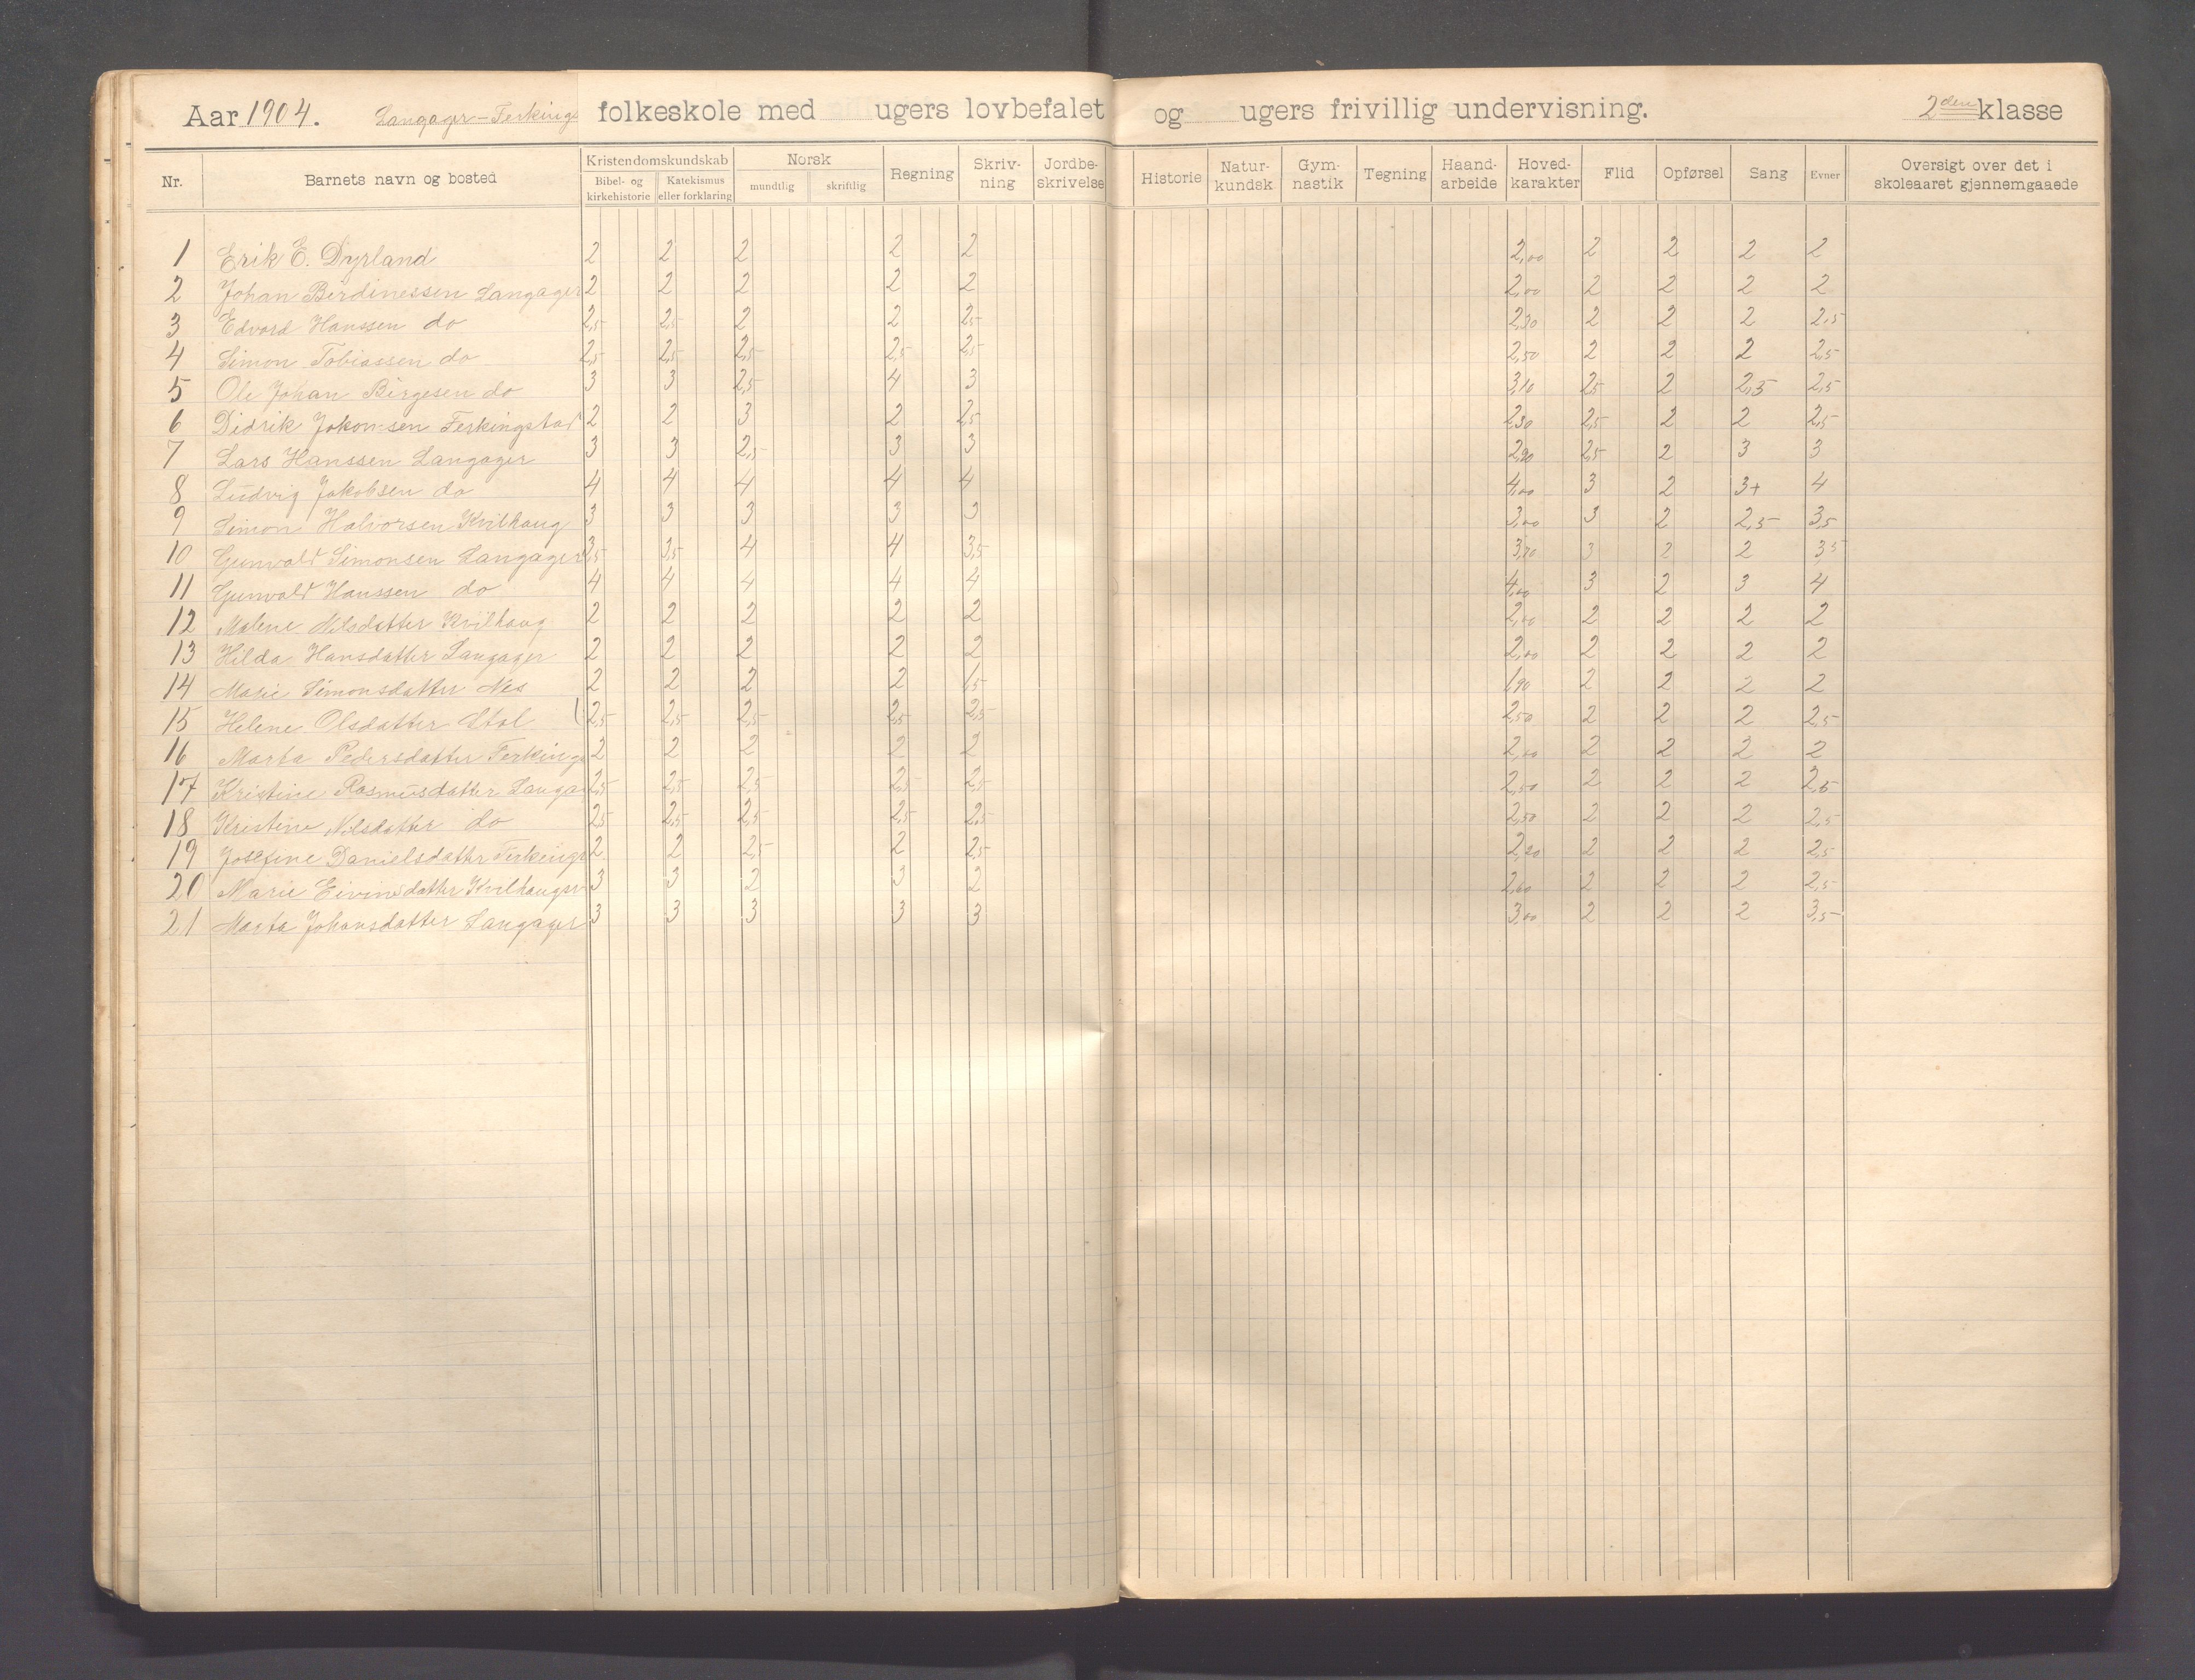 Aar 1904. Langager-Ferkings folkeskole med ugers lovbefalet og ugers frivillig undervisning. 2den klasse
Nr. Barnets navn og bosted Kristendomskundskab Bibel- og kirkehistorie Katekismus eller forklaring Norsk mundtlig skriftlig Regning Skriv-ning Jordbe-skrivelse Historie Natur-kundsk Gym-nastik Tegning Haand-arbeide Hoved-karakter Flid Opførsel Sang Evner Oversigt over det i skoleaaret gjennemgaaede
1 Erik E. Dyrland 2 2 2 2 2 2,00 2 2 2 2
2 Johan Berdinessen Langager 2 2 2 2 2 2,00 2 2 2 2
3 Edvard Hanssen do 2,5 2,5 2 2 2,5 2,30 2 2 2 2,5
4 Simon Tobiassen do 2,5 2,5 2,5 2,5 2,5 2,50 2 2 2 2,5
5 Ole Johan Birgesen do 3 3 2,5 4 3 3,10 2,5 2 2,5 2,5
6 Didrik Jakomsen Ferkingstad 2 2 3 2 2,5 2,30 2,5 2 2 2,5
7 Lars Hanssen Langager 3 3 2,5 3 3 2,90 2,5 2 3 3
8 Ludvig Jakobsen do 4 4 4 4 4 4,00 3 2 3+ 4
9 Simon Halvorsen Kvilhaug 3 3 3 3 3 3,00 3 2 2,5 3,5
10 Gunvald Simonsen Langager 3,5 3,5 4 4 3,5 3,70 3 2 2 3,5
11 Gunvald Hanssen do 4 4 4 4 4 4,00 3 2 3 4
12 Malene Nilsdatter Kvilhaug 2 2 2 2 2 2,00 2 2 2 2
13 Hilda Hansdatter Langager 2 2 2 2 2 2,00 2 2 2 2
14 Marie Simonsdatter Nes 2 2 2 2 1,5 1,90 2 2 2 2
15 Helene Olsdatter Stol 2,5 2,5 2,5 2,5 2,5 2,50 2 2 2 2,5
16 Marta Pedersdatter Ferkings 2 2 2 2 2 2,00 2 2 2 2
17 Kristine Rasmusdatter Langa 2,5 2,5 2,5 2,5 2,5 2,50 2 2 2 2,5
18 Kristine Nilsdatter do 2,5 2,5 2,5 2,5 2,5 2,50 2 2 2 2,5
19 Josefine Danielsdatter Ferkings 2 2 2,5 2 2,5 2,20 2 2 2 2,5
20 Marie Eivinsdatter Kvilhaugsr 3 3 2 3 2 2,60 2 2 2 2,5
21 Marta Johansdatter Langager 3 3 3 3 3 3,00 2 2 2 3,5